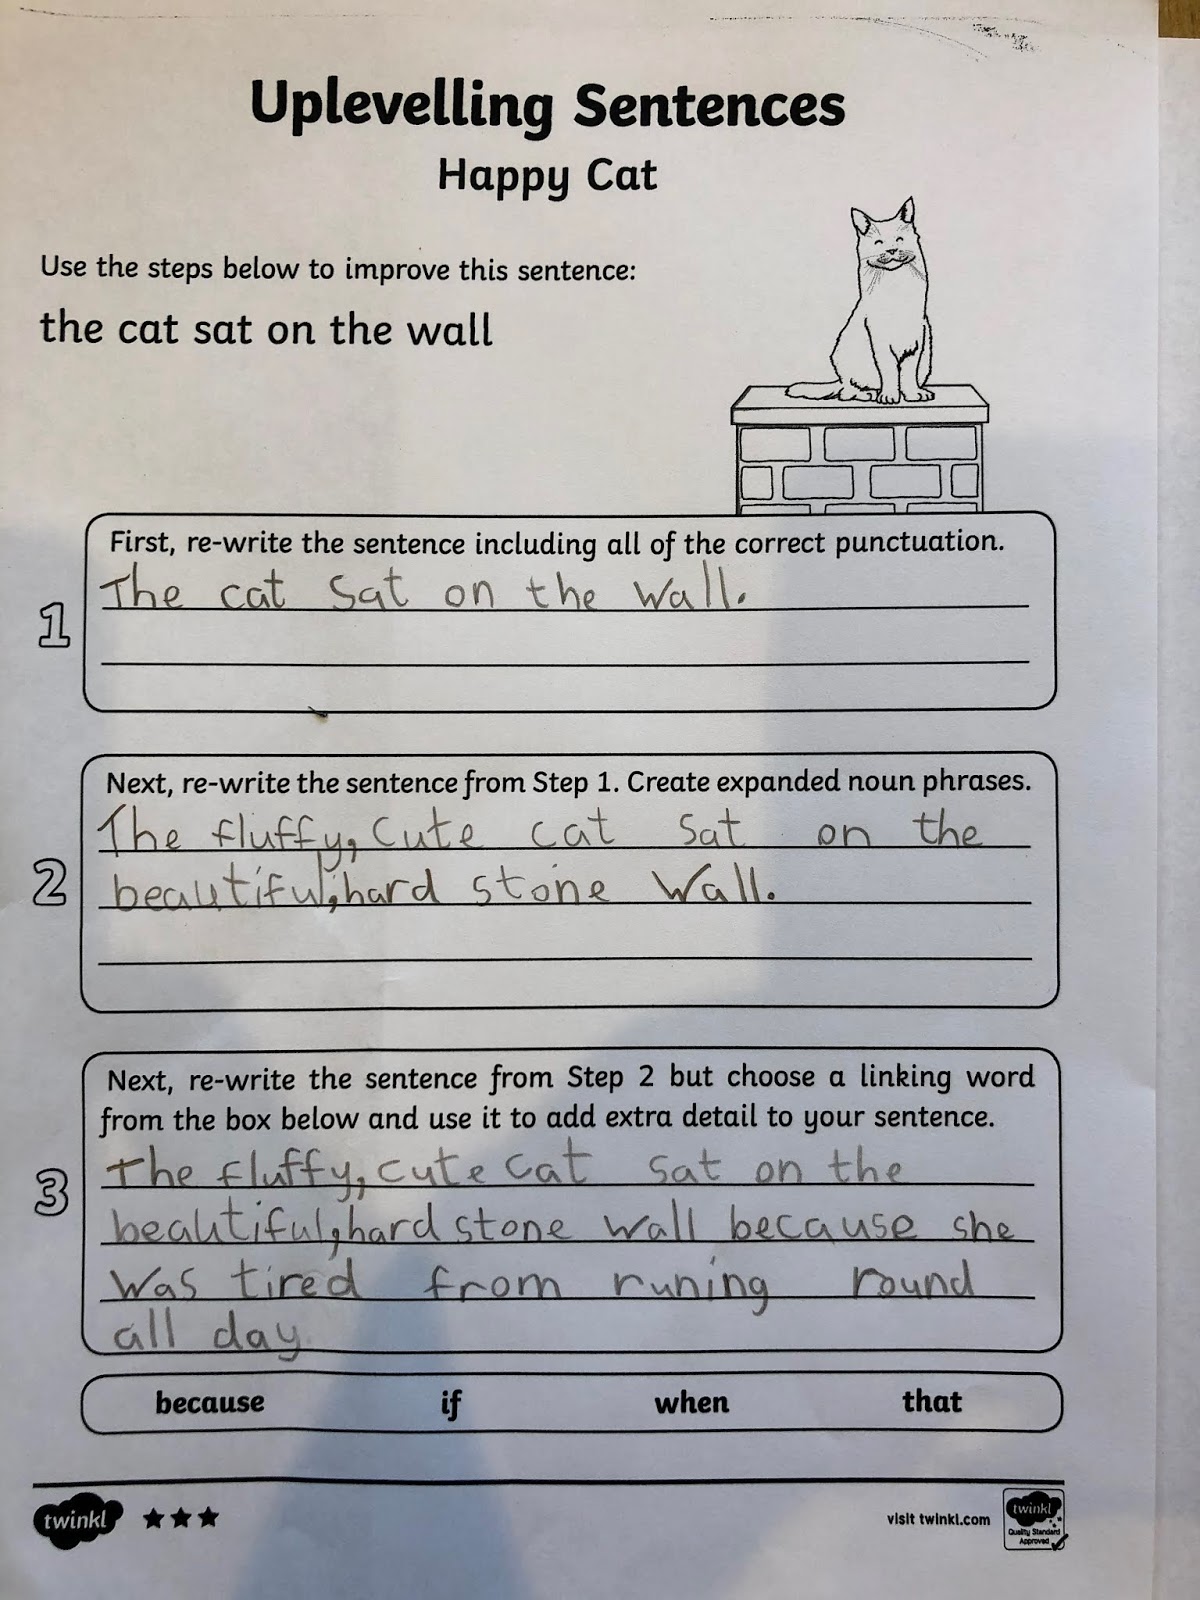 Uplevelling Sentences
Happy Cat
Use the steps below to improve this sentence:
the cat sat on the wall
First, re-write the sentence including all of the correct punctuation.
1
The cat sat on the wall.
Next, re-write the sentence from Step 1. Create expanded noun phrases.
2
The fluffy, cute cat sat on the
beautiful, hard stone wall.
Next, re-write the sentence from Step 2 but choose a linking word
from the box below and use it to add extra detail to your sentence.
3
The fluffy, cute cat sat on the
beautiful, hard stone wall because she
was tired from runing round
all day
because if when that
twinkl visit twinkl.com twinkl
Quality Standard
Approved